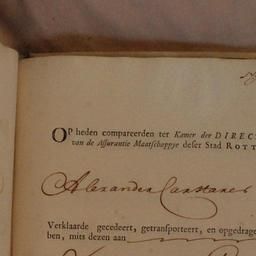 OP heden compareerden ter Kamer der DIREC
van de Assurantie Maatschappye deser Stad ROTT
Alexander Carstares
Verklaarde gecedeert, getransporteert, en opgedrage
ben, mits dezen aan